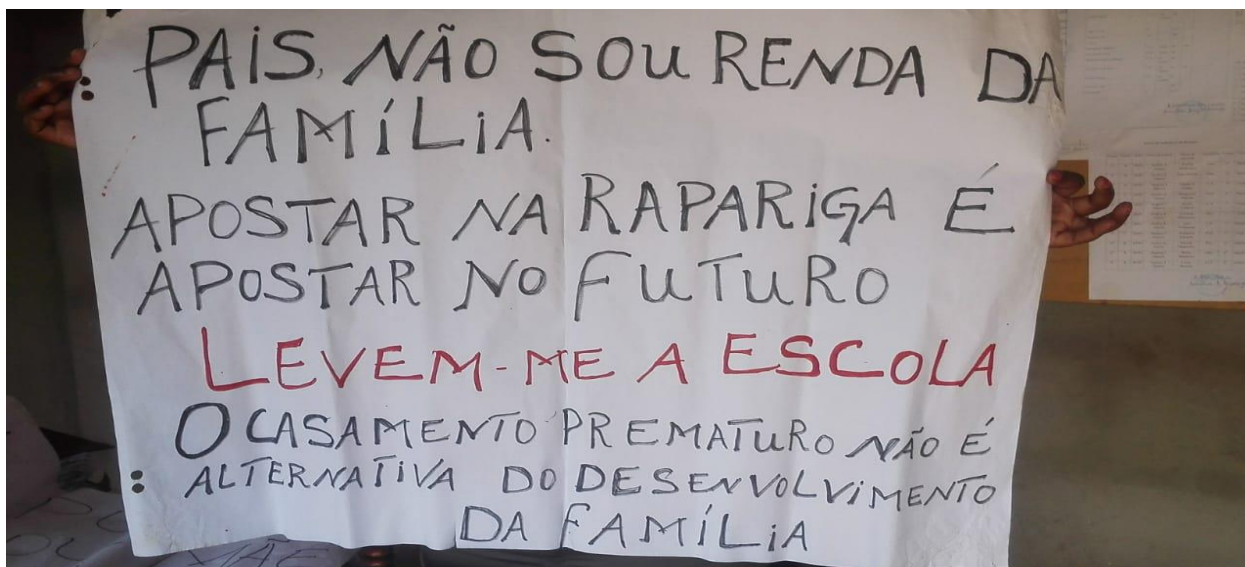 PAIS, NÃO SOU RENDA DA
FAMÍLIA.
APOSTAR NA RAPARIGA É
APOSTAR NO FUTURO
LEVEM-ME A ESCOLA
O CASAMENTO PREMATURO NÃO É
ALTERNATIVA DO DESENVOLVIMENTO
DA FAMÍLIA
MÃE